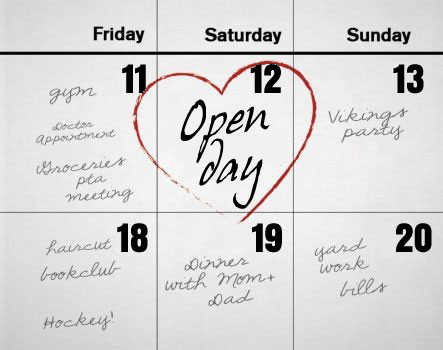 Friday
Saturday
Sunday
11
gym
Doctor
Appointment
Groceries
pta
meeting
12
Open
day
13
Vikings
party
18
haircut
bookclub
Hockey!
19
Dinner
with Mom+
Dad
20
yard
work
bills